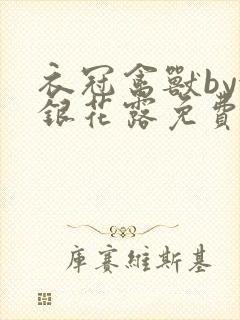 衣冠禽獸by
銀花露免費
庫賽維斯基